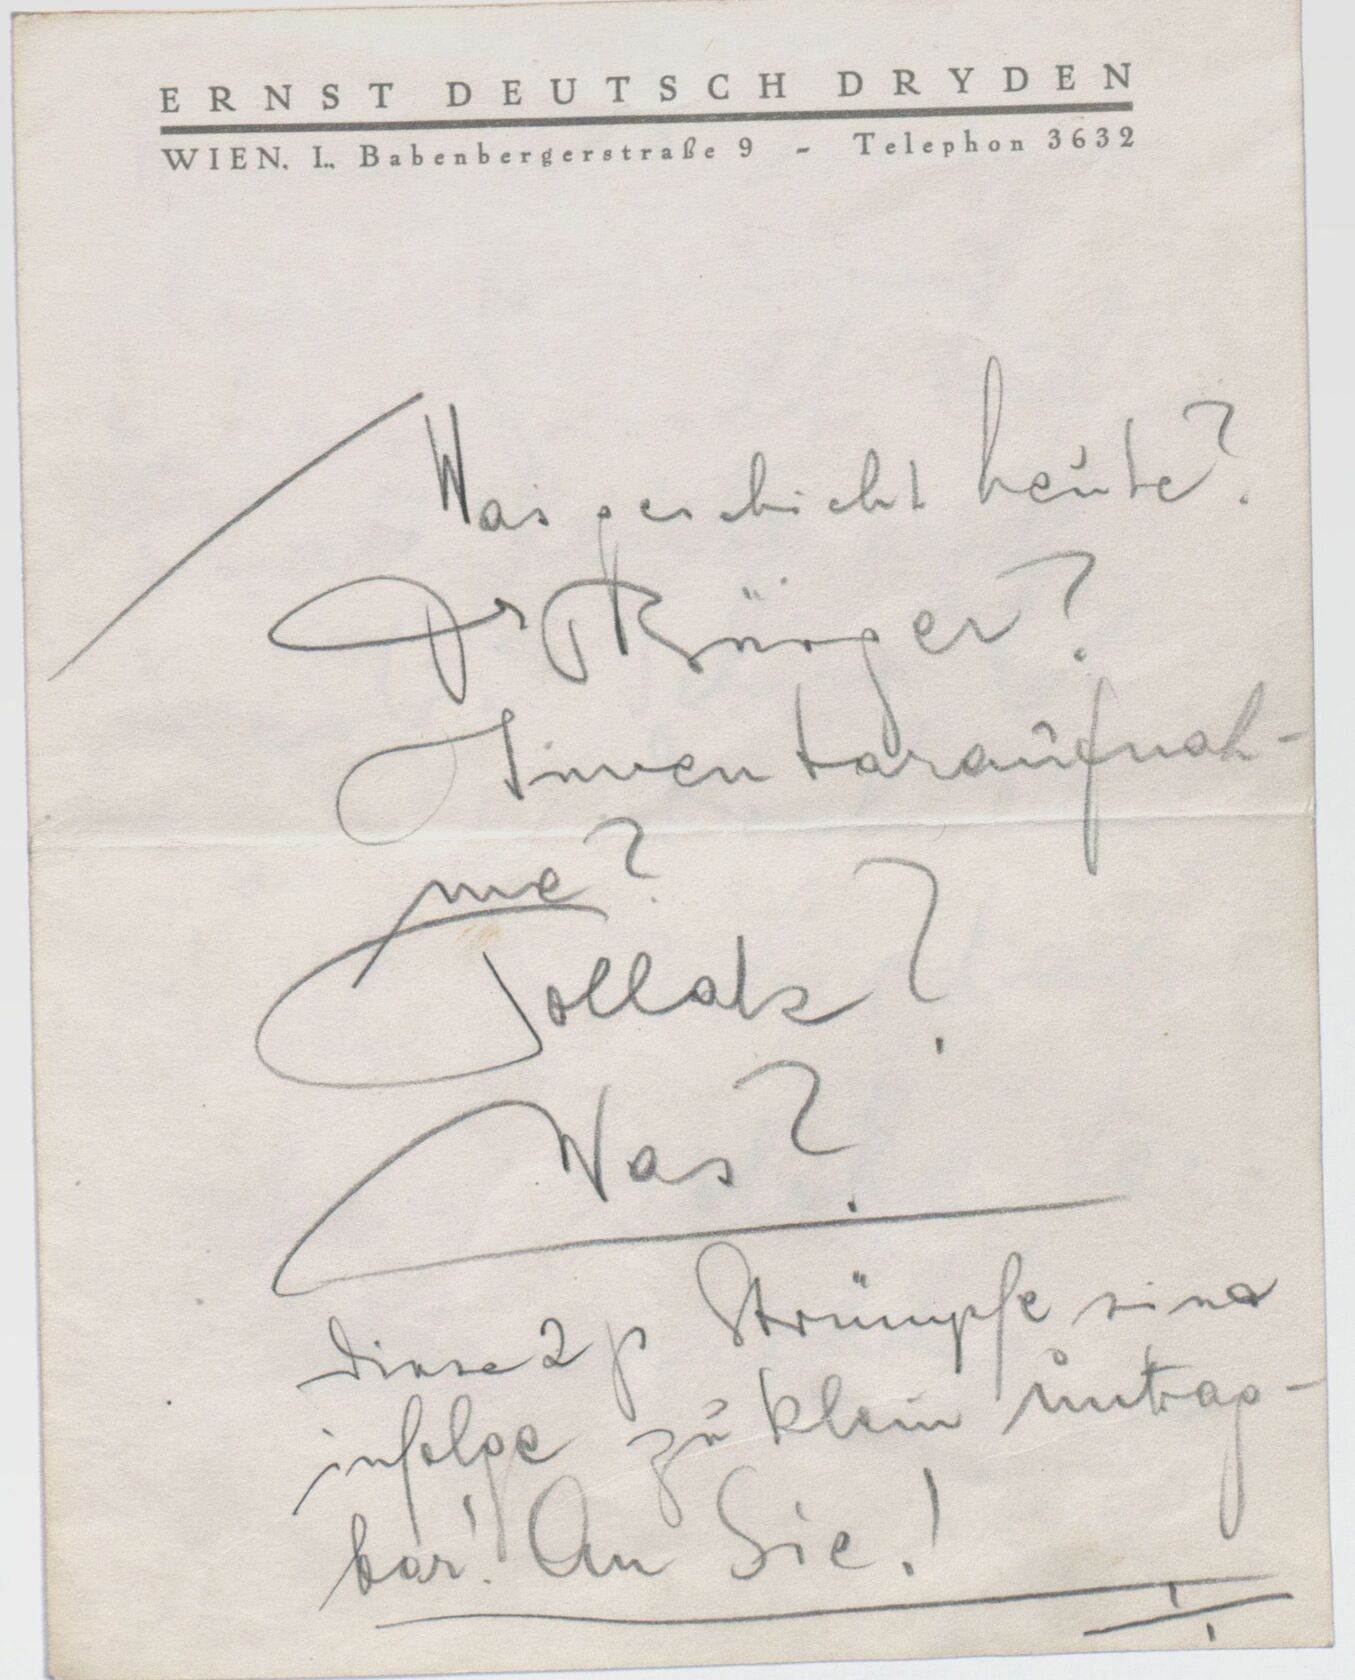 ERNST DEUTSCH DRYDEN
WIEN. I., Babenbergerstraße 9 - Telephon 3632
Was geschieht heute?
Dr Bürger?
Inventaraufnah-
me?
Pollak?
Was?
Diese 2 p Strümpfe sind
infolge zu klein untrag-
bar! An Sie!